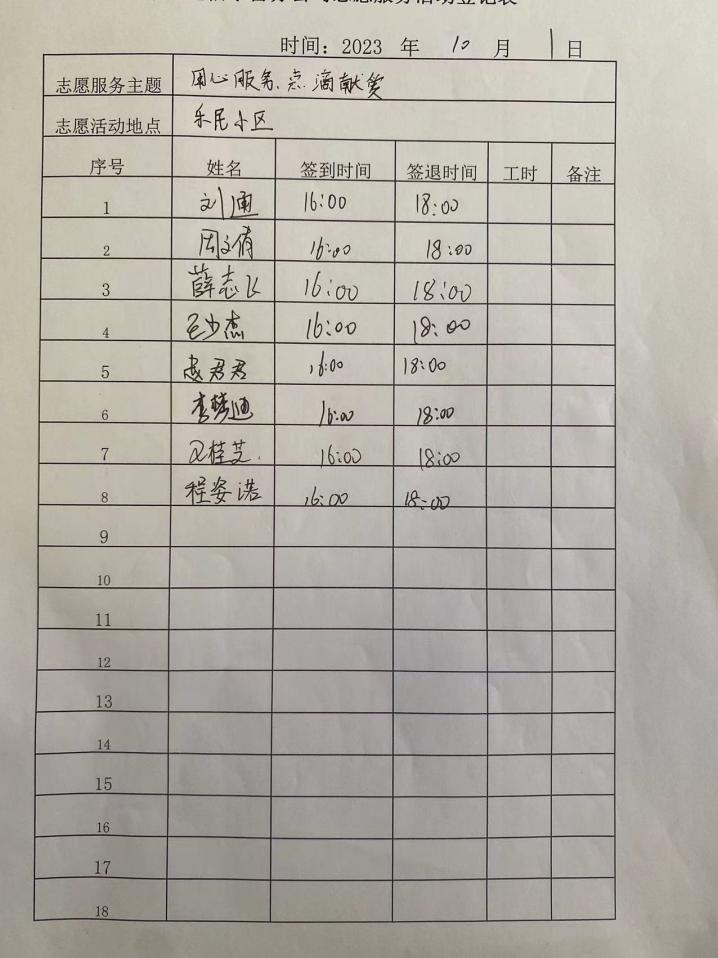 志愿服务活动登记表
时间：2023 年 10 月 1 日
志愿服务主题 用心服务、点滴献爱
志愿活动地点 乐民小区
序号 姓名 签到时间 签退时间 工时 备注
1 刘通 16:00 18:00
2 周文倩 16:00 18:00
3 薛志飞 16:00 18:00
4 少杰 16:00 18:00
5 君君 16:00 18:00
6 李梦迪 16:00 18:00
7 桂芝 16:00 18:00
8 程姿诺 16:00 18:00
9
10
11
12
13
14
15
16
17
18